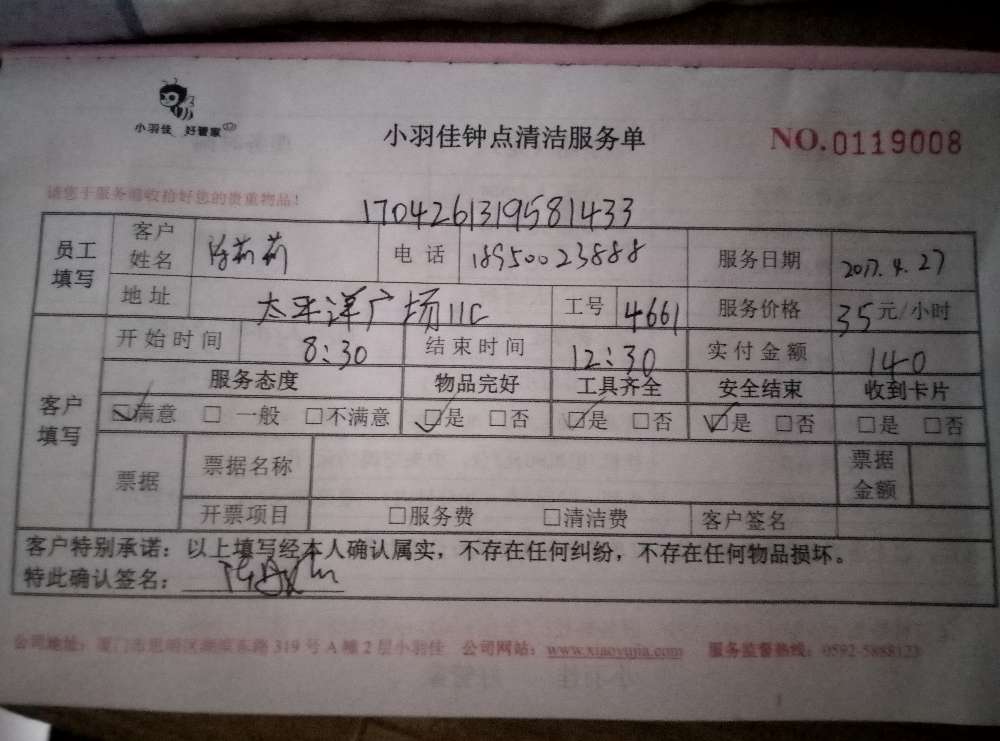 小羽佳 好管家
小羽佳钟点清洁服务单
NO.0119008
请您于服务前收拾好您的贵重物品!
1704261319581433
员工填写 客户姓名 陈莉莉 电话 18950023888 服务日期 2017.4.27
地址 太平洋广场11C 工号 4661 服务价格 35元/小时
客户填写 开始时间 8:30 结束时间 12:30 实付金额 140
服务态度 物品完好 工具齐全 安全结束 收到卡片
☑满意 □一般 □不满意 ☑是 □否 ☑是 □否 ☑是 □否 □是 □否
票据 票据名称 票据金额
开票项目 □服务费 □清洁费 客户签名
客户特别承诺:以上填写经本人确认属实,不存在任何纠纷,不存在任何物品损坏。
特此确认签名:
公司地址:厦门市思明区湖滨东路319号A幢2层小羽佳 公司网站:www.xiaoyujia.com 服务监督热线:0592-5888123